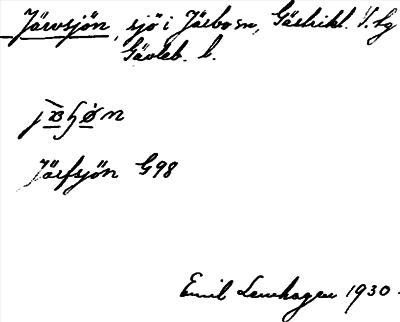 Järvsjön, sjö i Järbo sn, Gästrikl. V. lg
Gävleb. l.
Järfsjön G98
Emil Lenhagen 1930.